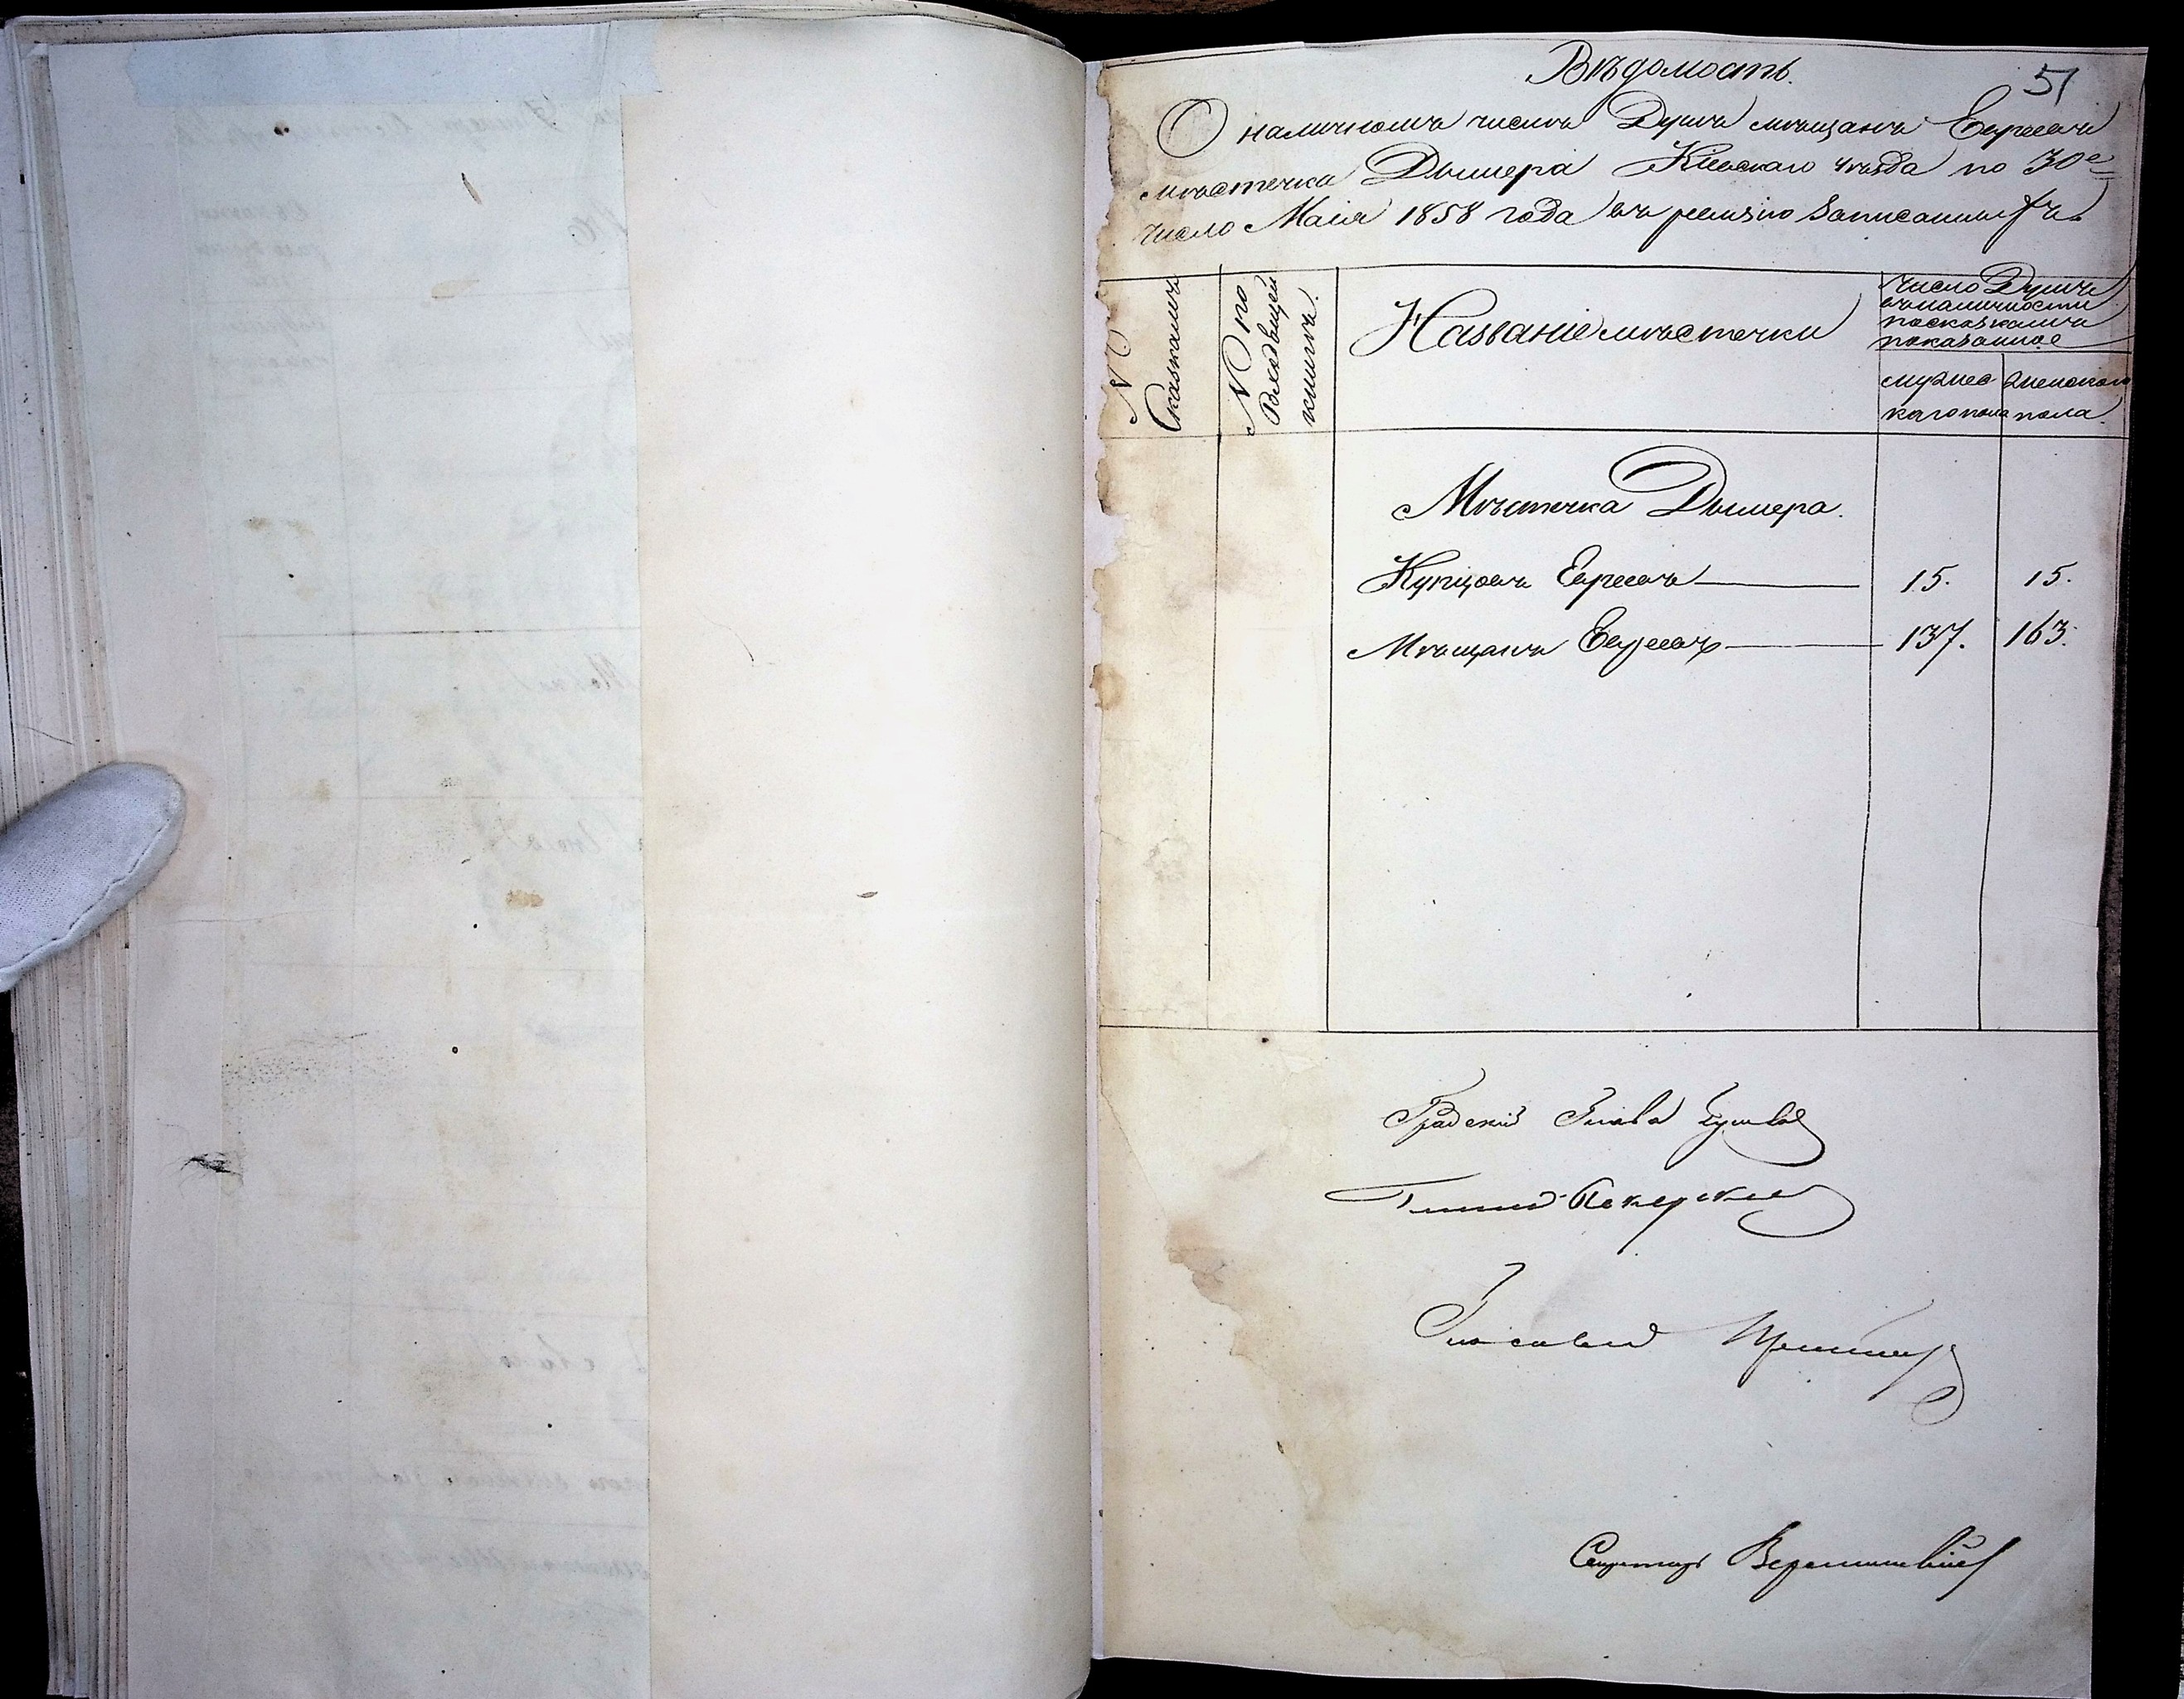 Вѣдомость.
51
О наличномъ числѣ Душъ мѣщанъ Евреевъ
мѣстечка Дымера Кіевскаго уѣзда по 30е
число Маія 1858 года въ ревизію записанныхъ
№ Сказкамъ
№ по
Входящей
книгѣ.
Названіе мѣстечки
Число Душъ
въ наличности
по сказкамъ
показанное
мужес
каго пола
женскаго
пола.
Мѣстечка Дымера.
Купцовъ Евреевъ 15. 15.
Мѣщанъ Евреевъ 137. 163.
Градскій Глава
Гласный
Секретарь